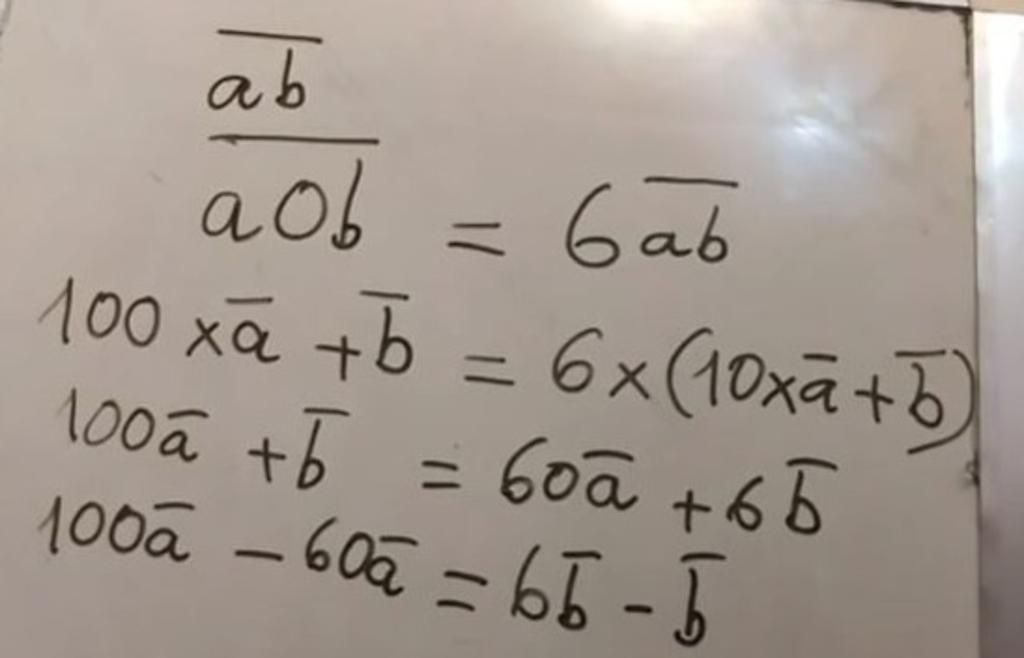 a̅b̅
a̅0̅b̅ = 6a̅b̅
100 × a̅ + b̅ = 6 × (10 × a̅ + b̅)
100a̅ + b̅ = 60a̅ + 6b̅
100a̅ - 60a̅ = 6b̅ - b̅